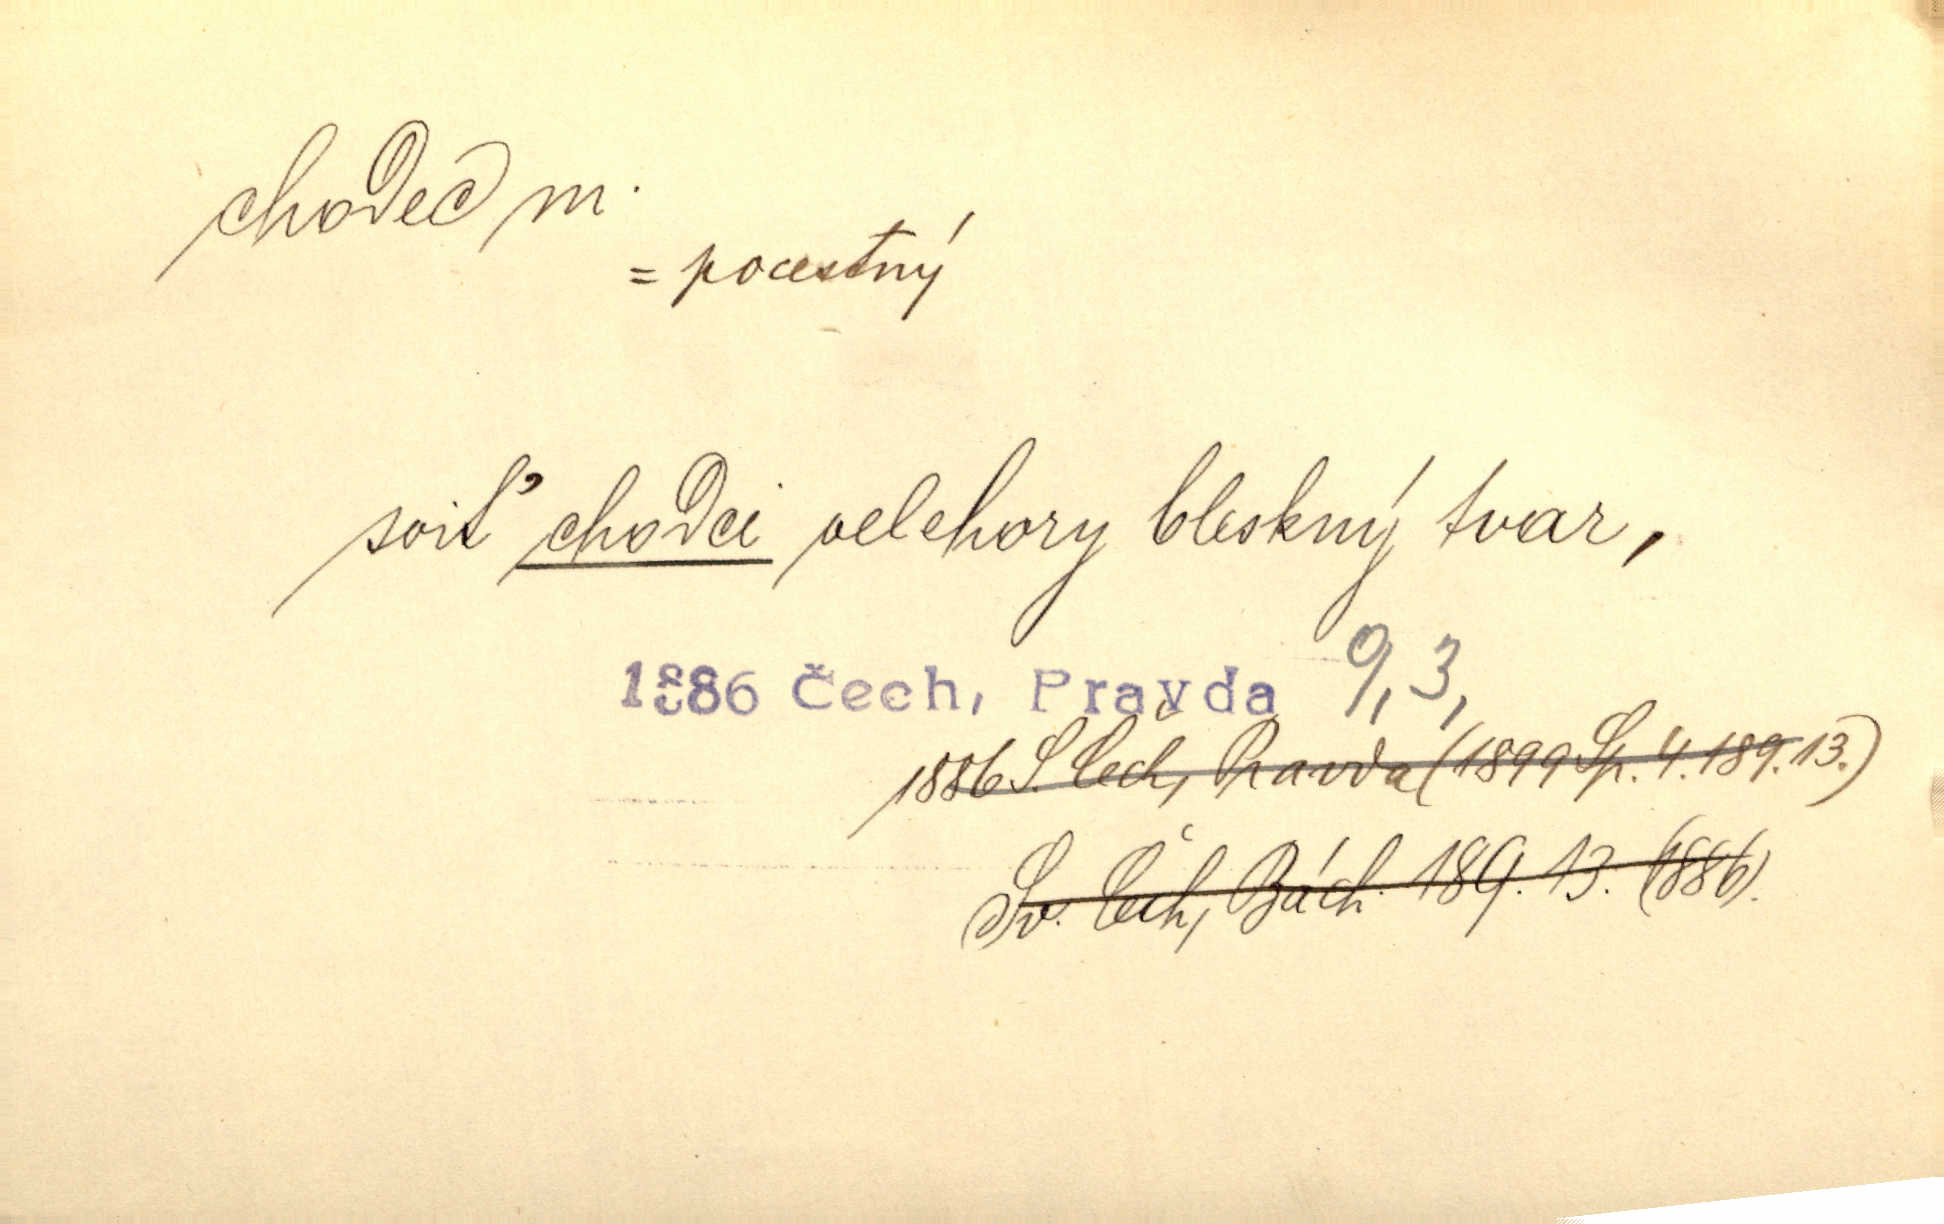 chodec m.
= pocestný
svit' chodci velehory bleskný tvar,
1886 Čech, Pravda 9,3,
1886 S. Čech, Pravda (1899 Sp. 4. 189. 13.)
(Sv. Čech, Bách. 189. 13. (886).